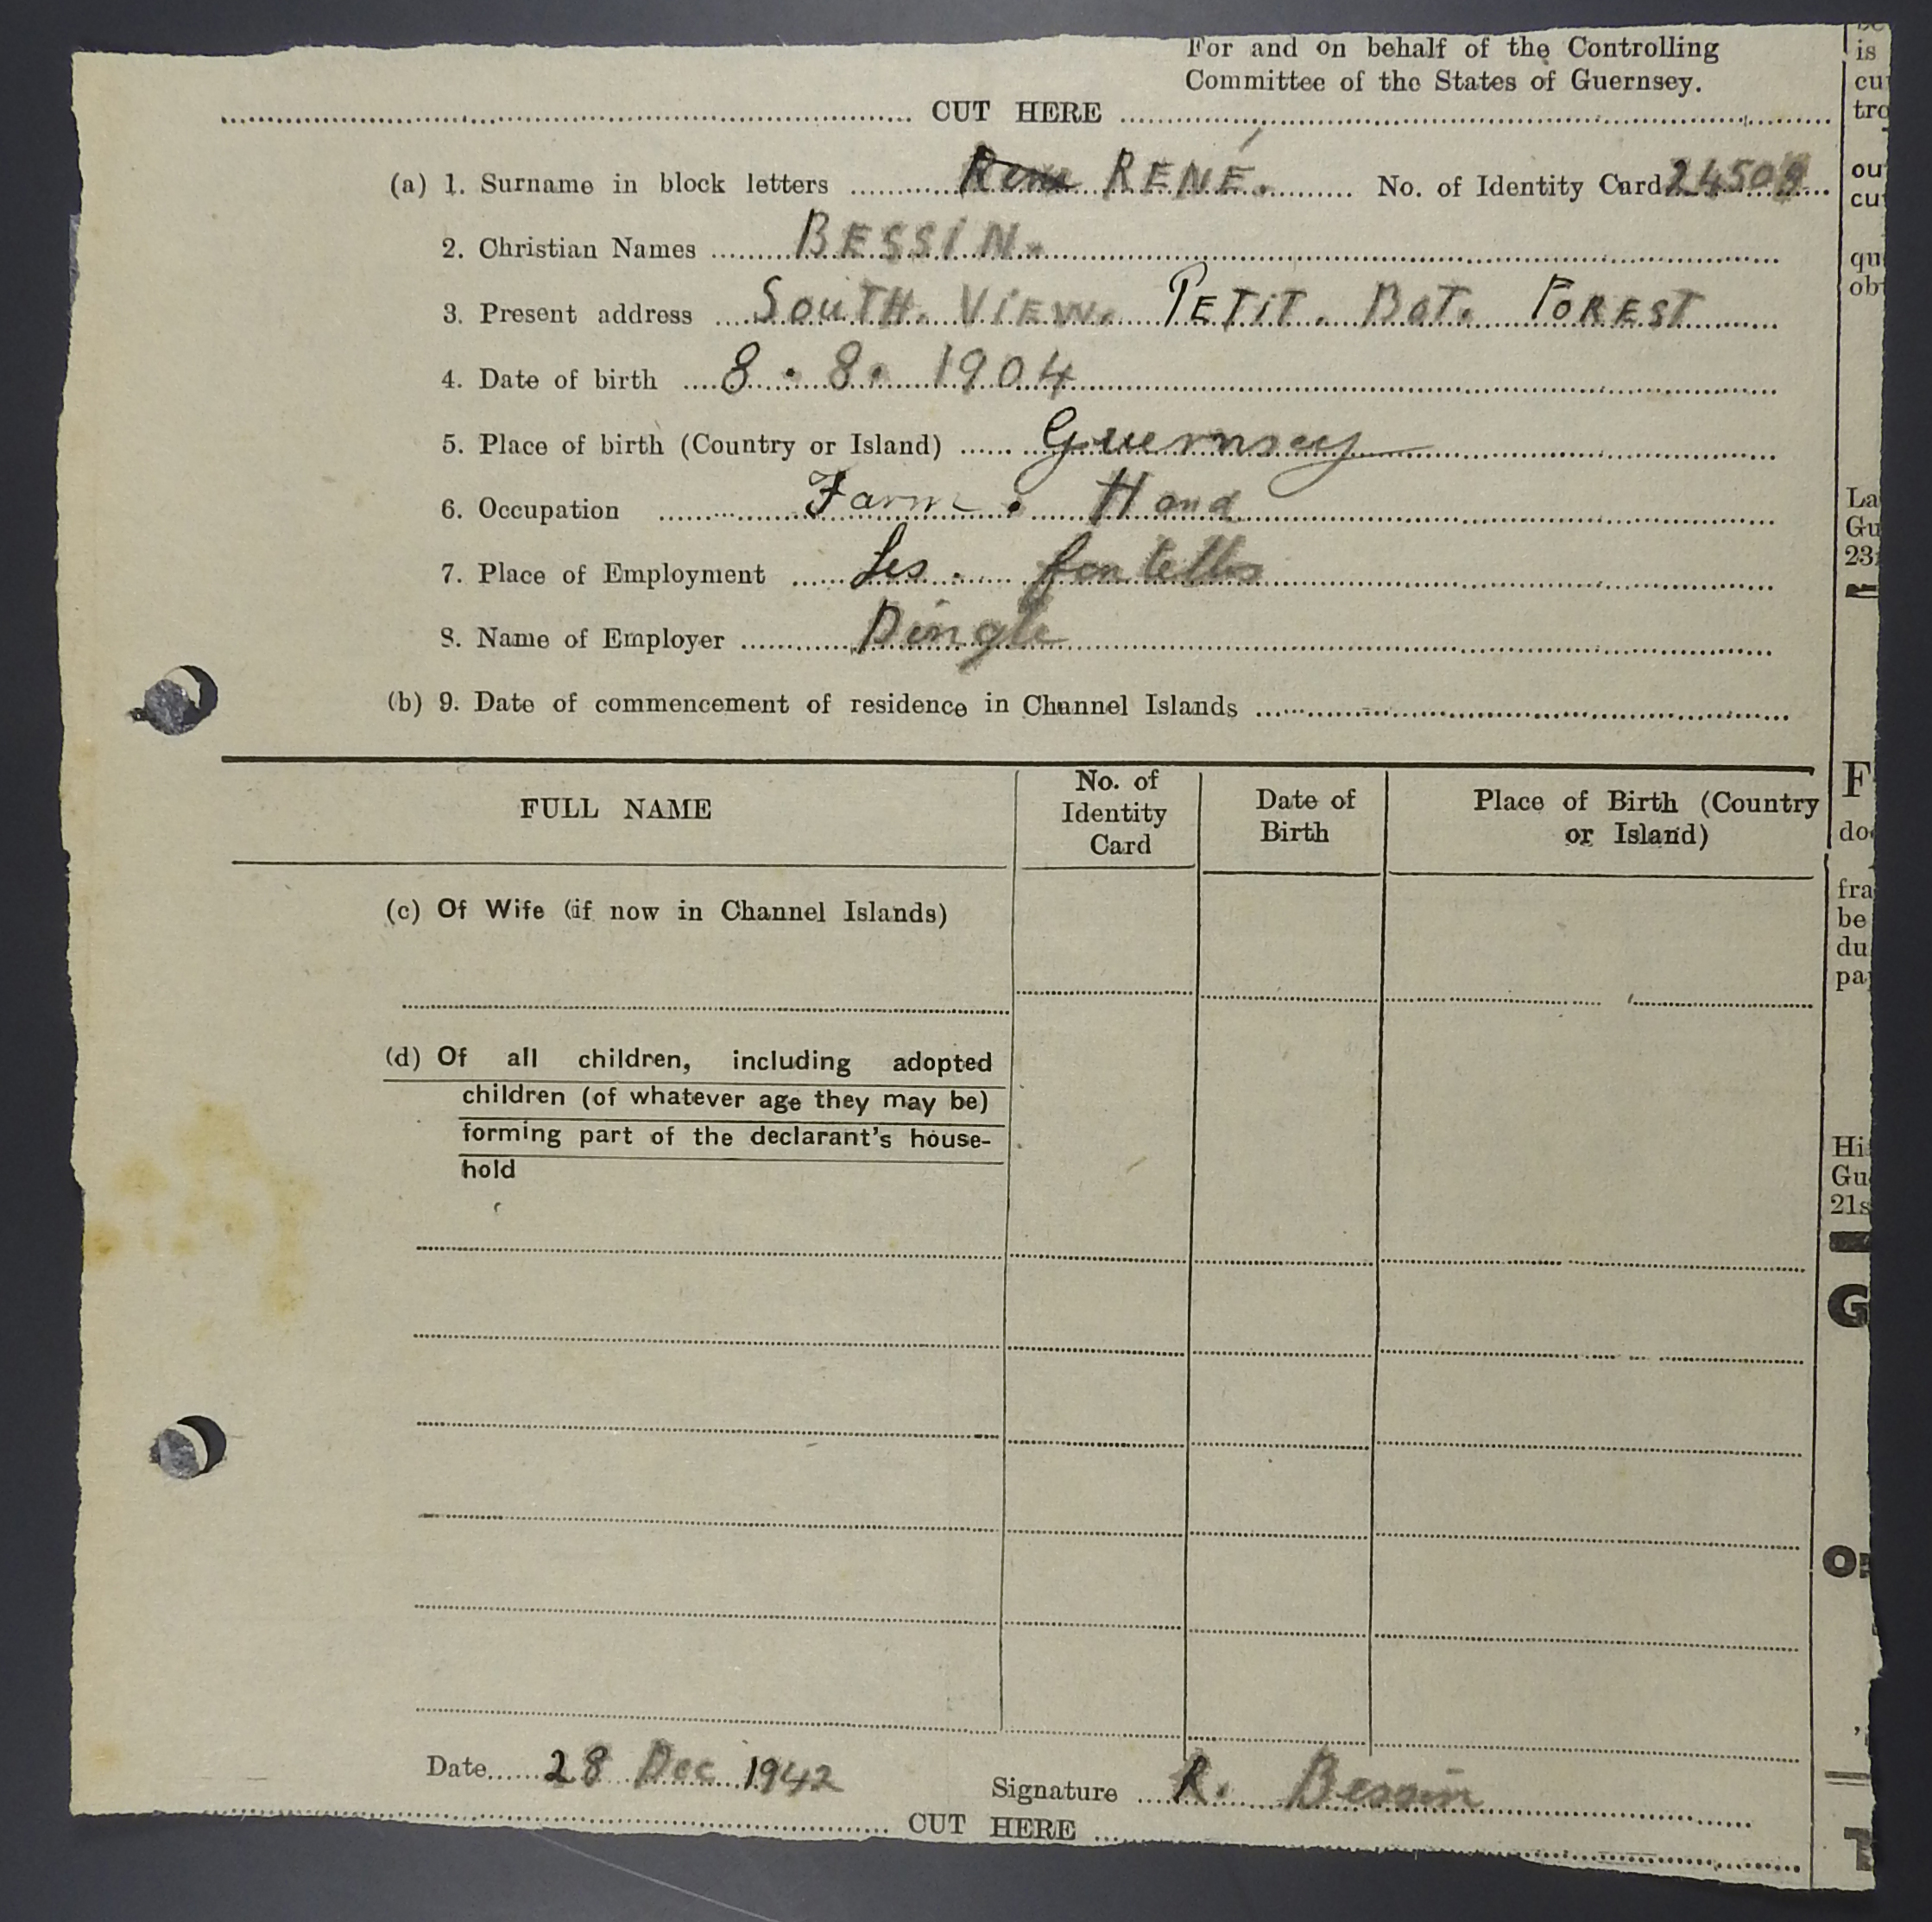 For and on behalf of the Controlling
Committee of the States of Guernsey.
CUT HERE
(a) 1. Surname in block letters RENÉ. No. of Identity Card 24509
2. Christian Names BESSIN.
3. Present address SOUTH. VIEW. PETIT. BOT. FOREST
4. Date of birth 8. 8. 1904
5. Place of birth (Country or Island) Guernsey
6. Occupation Farm. Hand
7. Place of Employment Les. fontelles
8. Name of Employer Dingle
(b) 9. Date of commencement of residence in Channel Islands
FULL NAME
No. of
Identity
Card
Date of
Birth
Place of Birth (Country
or Island)
(c) Of Wife (if now in Channel Islands)
(d) Of all children, including adopted
children (of whatever age they may be)
forming part of the declarant's house-
hold
Date 28 Dec 1942
Signature R. Bessin
CUT HERE
is
cu
tro
ou
cu
qu
ob
La
Gu
23
F
do
fra
be
du
pa
Hi
Gu
21s
G